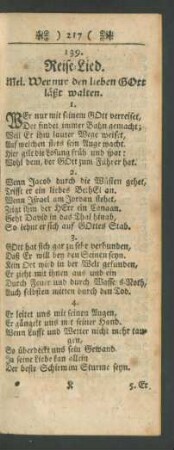 ) 217 (
139.
Reise-Lied.
Mel. Wer nur den lieben GOtt
läßt walten.
1.
WEr nur mit seinem GOtt verreiset,
Der findet immer Bahn gemacht;
Weil Er ihm lauter Wege weiset,
Auf welchen stets sein Auge wacht.
Hier gilt die Losung früh und spat:
Wohl dem, der GOtt zum Führer hat.
2.
Wenn Jacob durch die Wüsten gehet,
Trifft er ein liebes BethEl an.
Wenn Israel am Jordan stehet,
Zeigt ihm der HErr ein Canaan.
Geht David in das Thal hinab,
So lehnt er sich auf GOttes Stab.
3.
GOtt hat sich gar zu sehr verbunden,
Daß Er will bey den Seinen seyn.
Kein Ort wird in der Welt gefunden,
Er zieht mit ihnen aus und ein
Durch Feuer und durch Wassers-Noth,
Auch selbsten mitten durch den Tod.
4.
Er leitet uns mit seinen Augen,
Er gängelt uns mit seiner Hand.
Wenn Lufft und Wetter nicht mehr tau-
gen,
So überdeckt uns sein Gewand.
Ja seine Liebe kan allein
Der beste Schirm im Sturme seyn.
K 5. Er